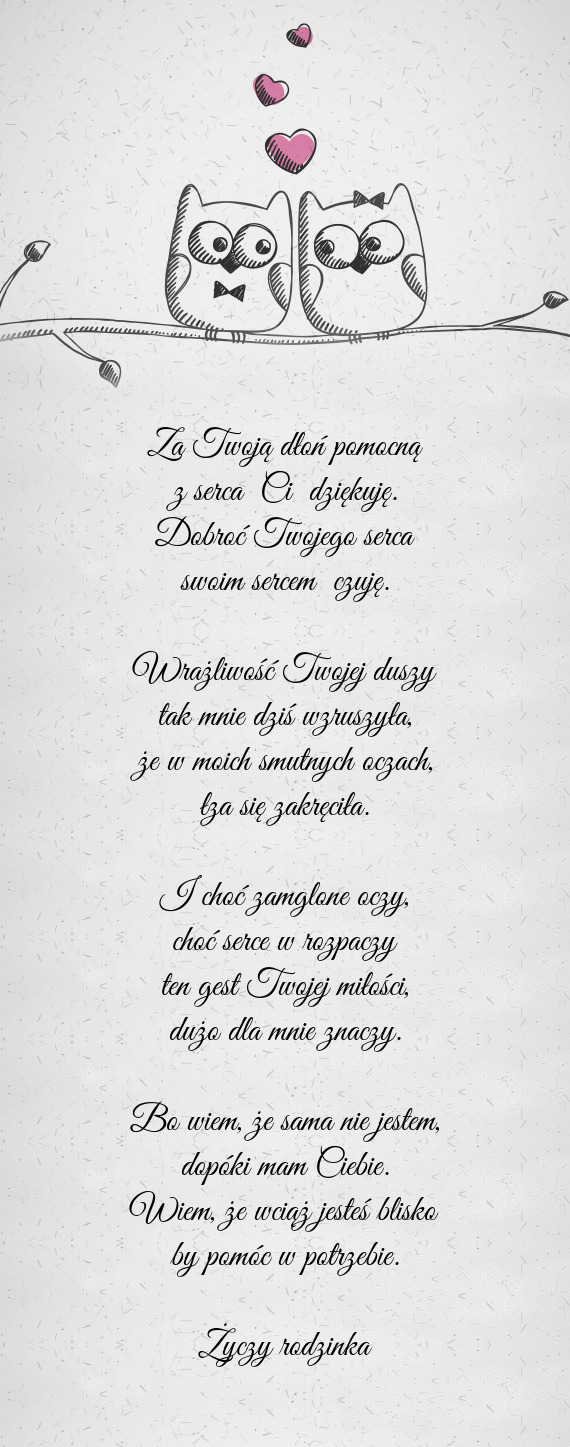 Za Twoją dłoń pomocną
z serca Ci dziękuję.
Dobroć Twojego serca
swoim sercem czuję.

Wrażliwość Twojej duszy
tak mnie dziś wzruszyła,
że w moich smutnych oczach,
łza się zakręciła.

I choć zamglone oczy,
choć serce w rozpaczy
ten gest Twojej miłości,
dużo dla mnie znaczy.

Bo wiem, że sama nie jestem,
dopóki mam Ciebie.
Wiem, że wciąż jesteś blisko
by pomóc w potrzebie.

Życzy rodzinka